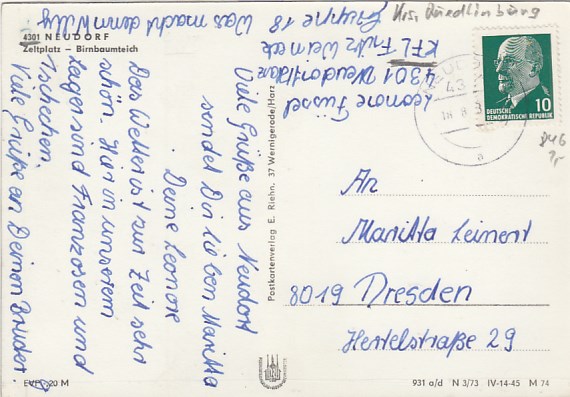 4301 NEUDORF
Zeltplatz – Birnbaumteich
Viele Grüße aus Neudorf
sendet Dir lieben Maritta
Deine Leonore
Das Wetter ist zur Zeit sehr
schön. Hir in unserem
Lager sind Franzosen und
Tschechen.
Viele Grüße an Deinen Bruder.
Was macht denn Willy
Leonore Füssel
4301 Neudorf/Harz
KFL Fritz Weineck
Gruppe 18
Krs. Quedlinburg
Postkartenverlag E. Riehn, 37 Wernigerode/Harz
43
18.8.
a
10
DEUTSCHE
DEMOKRATISCHE REPUBLIK
846
An
Maritta Leinert
8019 Dresden
Hertelstraße 29
EVP -,20 M
931 a/d N 3/73 IV-14-45 M 74